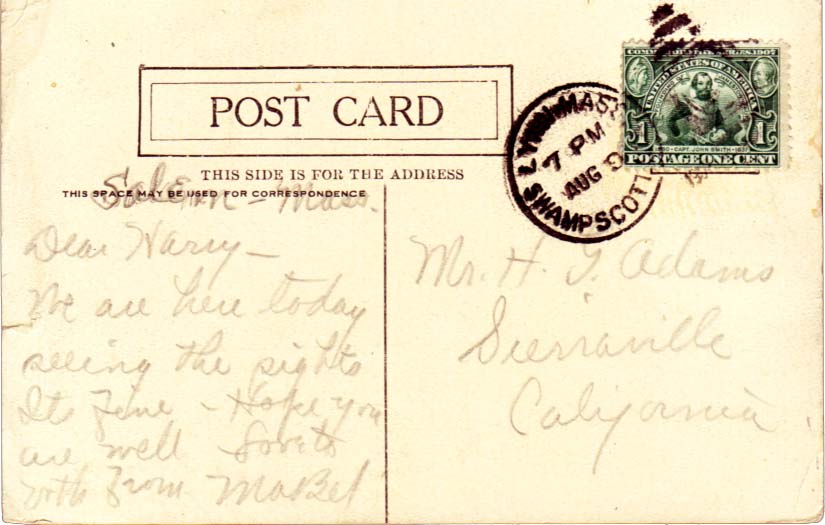 COMMEMORATIVE SERIES 1907
UNITED STATES OF AMERICA
1 1
1580 - CAPT. JOHN SMITH - 1631
POSTAGE ONE CENT
LYNN MASS.
7 PM
AUG 9
SWAMPSCOTT
POST CARD
THIS SIDE IS FOR THE ADDRESS
THIS SPACE MAY BE USED FOR CORRESPONDENCE
Salem - Mass.
Dear Harry -
We are here today
seeing the sights
Its fine - Hope you
are well - Love to
from Mabel
Mr. H. G. Adams
Sierraville
California.